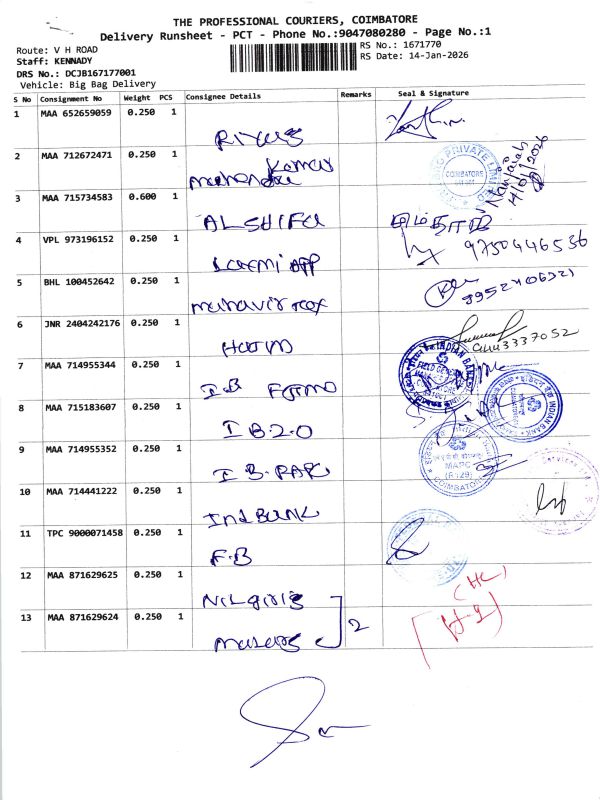 THE PROFESSIONAL COURIERS, COIMBATORE
Delivery Runsheet - PCT - Phone No.:9047080280 - Page No.:1
Route: V H ROAD
RS No.: 1671770
Staff: KENNADY
RS Date: 14-Jan-2026
DRS No.: DCJB167177001
Vehicle: Big Bag Delivery
S No Consignment No Weight PCS Consignee Details Remarks Seal & Signature
1 MAA 652659059 0.250 1
2 MAA 712672471 0.250 1
Kumar
Mahendra
14/01/2026
COIMBATORE
3 MAA 715734583 0.600 1
ALSHIFA
4 VPL 973196152 0.250 1
9750446536
Laxmi APP
5 BHL 100452642 0.250 1
Mahavir roof
6 JNR 2404242176 0.250 1
7 MAA 714955344 0.250 1
INDIAN BANK
8 MAA 715183607 0.250 1
INDIAN BANK
I B Z.O
9 MAA 714955352 0.250 1
MAPC
COIMBATORE
10 MAA 714441222 0.250 1
Ind Bank
11 TPC 9000071458 0.250 1
F.B
12 MAA 871629625 0.250 1
Nilgiris
13 MAA 871629624 0.250 1
2